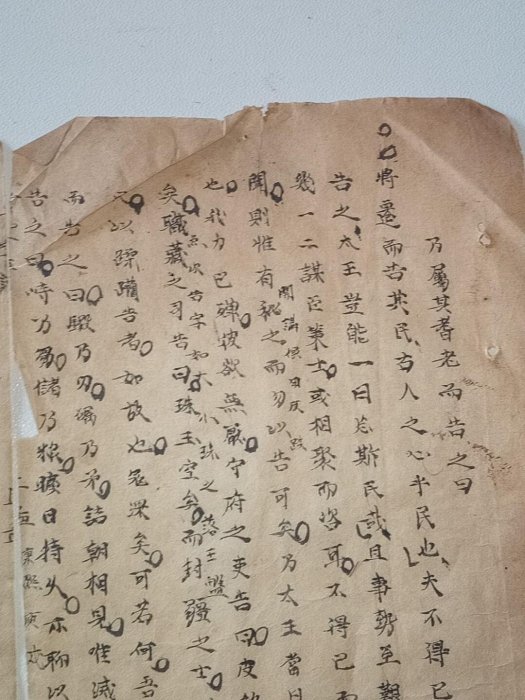 乃屬其耆老而告之曰
將遷而告其民古人之心乎民也夫不得已
告之太王豈能一日忘斯民哉且事勢至艱
幾一二謀臣策士或相聚而咨可不得已而
開則惟有秘之而勿以告可矣乃太王當日
也我力已殫彼欲無厭守府之吏告曰皮
矣職藏之司告曰珠玉空矣而封疆之士
又以蹂躪告者如故也冤深矣可若何吾
而告之曰鍛乃刃礪乃矛詰朝相見惟滅
告之曰峙乃芻儲乃糇曠日持久亦聊以